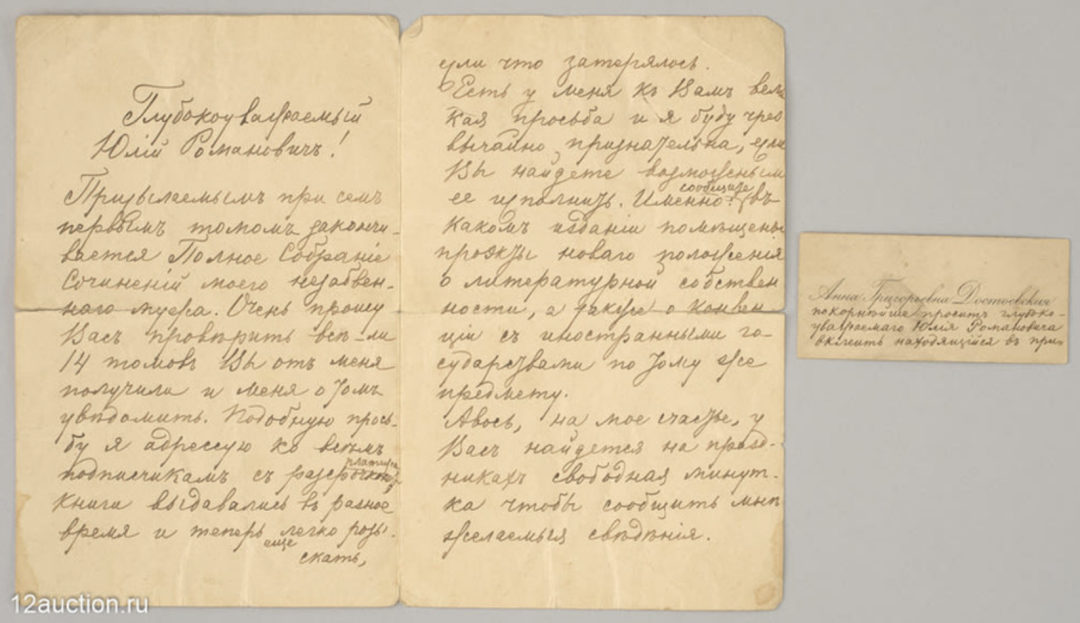 Глубокоуважаемый
Юлій Романовичъ!
Присылаемымъ при семъ
первымъ томомъ закончи-
вается Полное Собраніе
Сочиненій моего незабвен-
наго мужа. Очень прошу
Васъ провѣрить всѣ-ли
14 томовъ Вы отъ меня
получили и меня о томъ
увѣдомить. Подобную прось-
бу я адрессую ко всѣмъ
подписчикамъ съ разсрочкой
книги выдавались въ разное
время и теперь еще легко розы-
скать,
если что затерялось.
Есть у меня къ Вамъ вели
кая просьба и я буду чрез
вычайно признательна, если
Вы найдете возможнымъ
ее исполнить. Именно: сообщите въ
какомъ изданіи помѣщены
проэкты новаго положенія
о литературной собствен
ности, а также о конвен
ціи съ иностранными го-
сударствами по тому же
предмету.
Авось, на мое счастье, у
Васъ найдется на празд-
никахъ свободная минут-
ка чтобы сообщить мнѣ
желаемыя свѣдѣнія.
Анна Григорьевна Достоевская
покорнѣйше проситъ глубоко-
уважаемаго Юлія Романовича
находящійся въ при-
12auction.ru